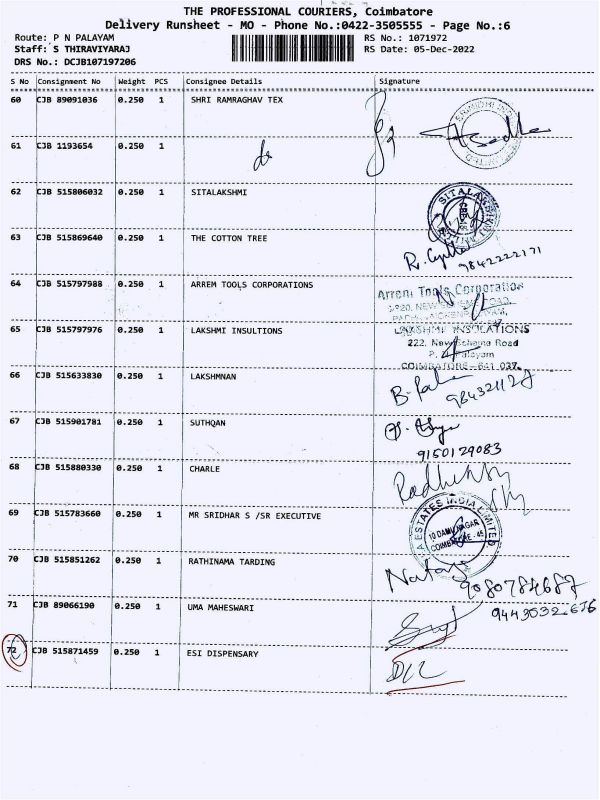 THE PROFESSIONAL COURIERS, Coimbatore
Delivery Runsheet - MO - Phone No.:0422-3505555 - Page No.:6
Route: P N PALAYAM
RS No.: 1071972
Staff: S THIRAVIYARAJ
RS Date: 05-Dec-2022
DRS No.: DCJB107197206
S No Consignment No Weight PCS Consignee Details Signature
60 CJB 89091036 0.250 1 SHRI RAMRAGHAV TEX
61 CJB 1193654 0.250 1
62 CJB 515806032 0.250 1 SITALAKSHMI
63 CJB 515869640 0.250 1 THE COTTON TREE
9842222171
64 CJB 515797988 0.250 1 ARREM TOOLS CORPORATIONS
Arrem Tools Corporation
65 CJB 515797976 0.250 1 LAKSHMI INSULTIONS
LAKSHMI INSULATIONS
222, New Scheme Road
COIMBATORE-641 037.
66 CJB 515633830 0.250 1 LAKSHMNAN
67 CJB 515901781 0.250 1 SUTHQAN
9150129083
68 CJB 515880330 0.250 1 CHARLE
69 CJB 515783660 0.250 1 MR SRIDHAR S /SR EXECUTIVE
ESTATES INDIA LIMITED
COIMBATORE - 45
70 CJB 515851262 0.250 1 RATHINAMA TARDING
9080784687
71 CJB 89066190 0.250 1 UMA MAHESWARI
72 CJB 515871459 0.250 1 ESI DISPENSARY